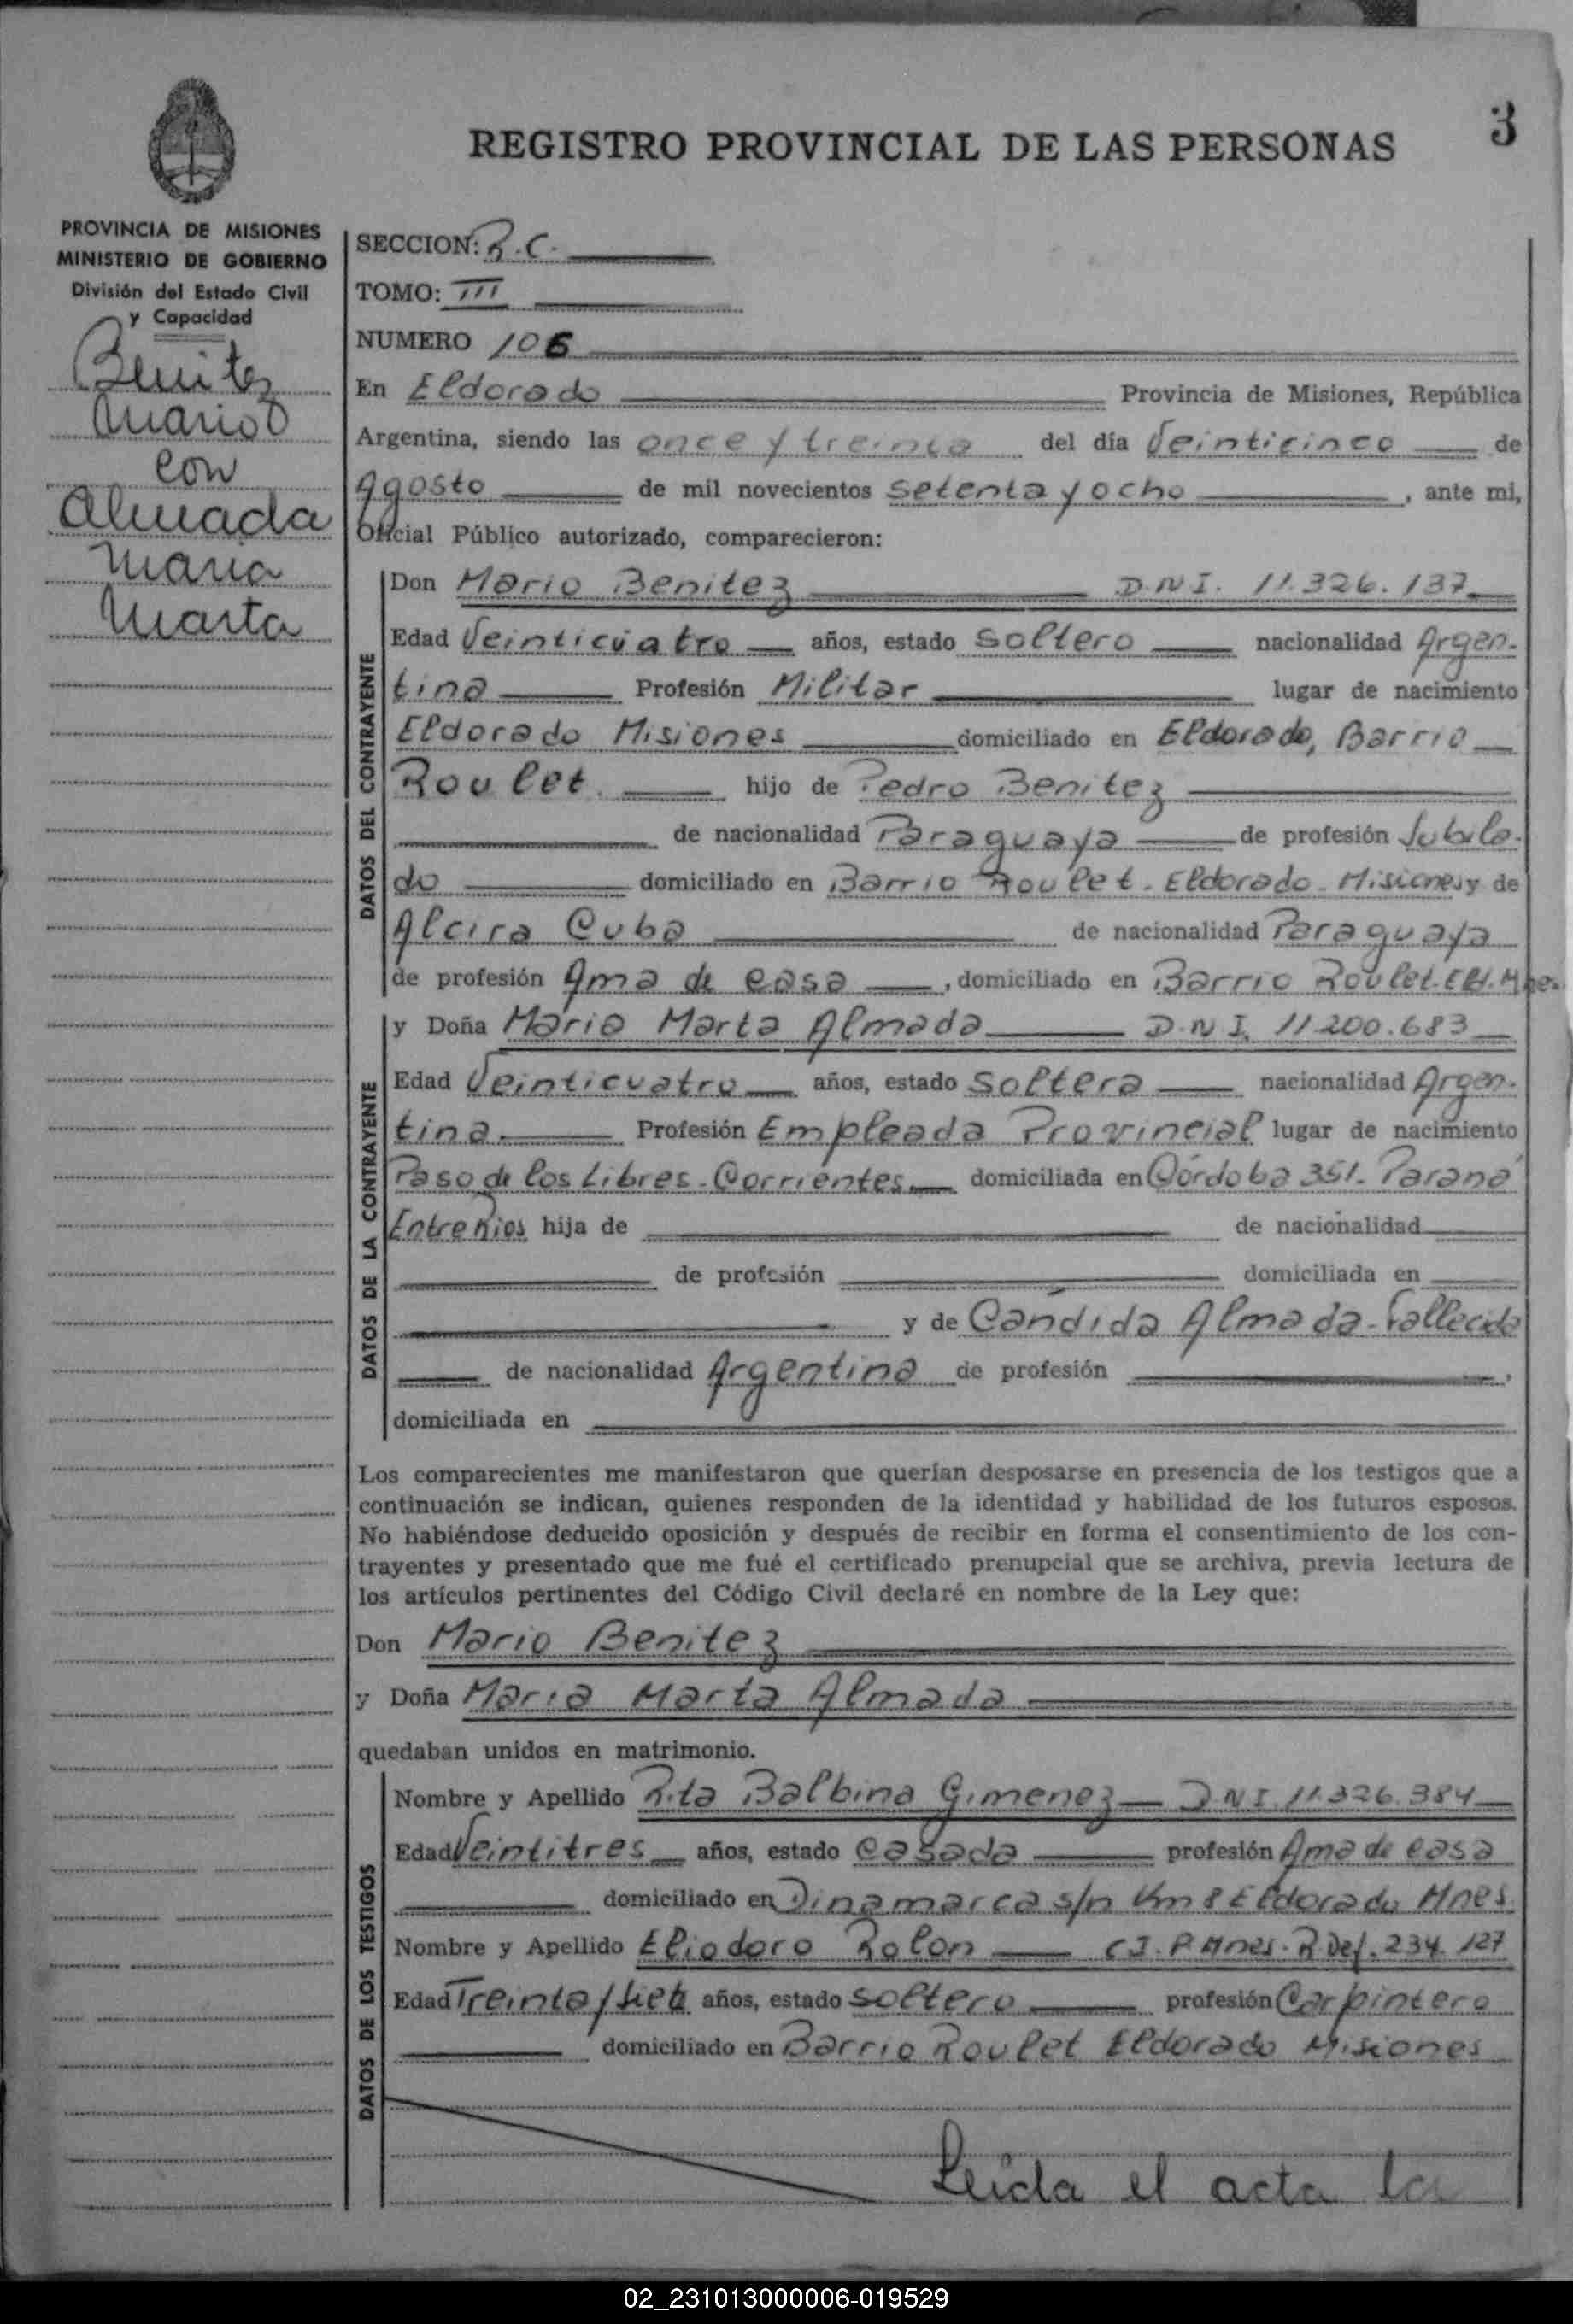 3
REGISTRO PROVINCIAL DE LAS PERSONAS
PROVINCIA DE MISIONES
MINISTERIO DE GOBIERNO
División del Estado Civil
y Capacidad
Benitez
Mario
con
Almada
Maria
Marta
SECCION: R.C.
TOMO: III
NUMERO 106
En Eldorado Provincia de Misiones, República
Argentina, siendo las once y treinta del día Veinticinco de
Agosto de mil novecientos setenta y ocho, ante mi,
Oficial Público autorizado, comparecieron:
DATOS DEL CONTRAYENTE
Don Mario Benitez D.N.I. 11.326.137
Edad Veinticuatro años, estado soltero nacionalidad Argen-
tina Profesión Militar lugar de nacimiento
Eldorado Misiones domiciliado en Eldorado, Barrio
Roulet. hijo de Pedro Benitez
de nacionalidad Paraguaya de profesión Jubila-
do domiciliado en Barrio Roulet. Eldorado. Misiones y de
Alcira Cuba de nacionalidad Paraguaya
de profesión Ama de casa, domiciliado en Barrio Roulet. Eld. Mnes.
DATOS DE LA CONTRAYENTE
y Doña Maria Marta Almada D.N.I. 11.200.683
Edad Veinticuatro años, estado soltera nacionalidad Argen-
tina. Profesión Empleada Provincial lugar de nacimiento
Paso de los Libres. Corrientes domiciliada en Córdoba 351. Paraná
Entre Rios hija de de nacionalidad
de profesión domiciliada en
y de Cándida Almada-Fallecida
de nacionalidad Argentina de profesión ,
domiciliada en
Los comparecientes me manifestaron que querían desposarse en presencia de los testigos que a
continuación se indican, quienes responden de la identidad y habilidad de los futuros esposos.
No habiéndose deducido oposición y después de recibir en forma el consentimiento de los con-
trayentes y presentado que me fué el certificado prenupcial que se archiva, previa lectura de
los artículos pertinentes del Código Civil declaré en nombre de la Ley que:
Don Mario Benitez
y Doña Maria Marta Almada
quedaban unidos en matrimonio.
DATOS DE LOS TESTIGOS
Nombre y Apellido Rita Balbina Gimenez D.N.I. 11.326.384
Edad Veintitres años, estado casada profesión Ama de casa
domiciliado en Dinamarca s/n Km 8 Eldorado Mnes.
Nombre y Apellido Eliodoro Rolon C.I. P. Mnes. R. Def. 234.127
Edad Treinta y siete años, estado soltero profesión Carpintero
domiciliado en Barrio Roulet Eldorado Misiones
Leida el acta la
02_231013000006-019529